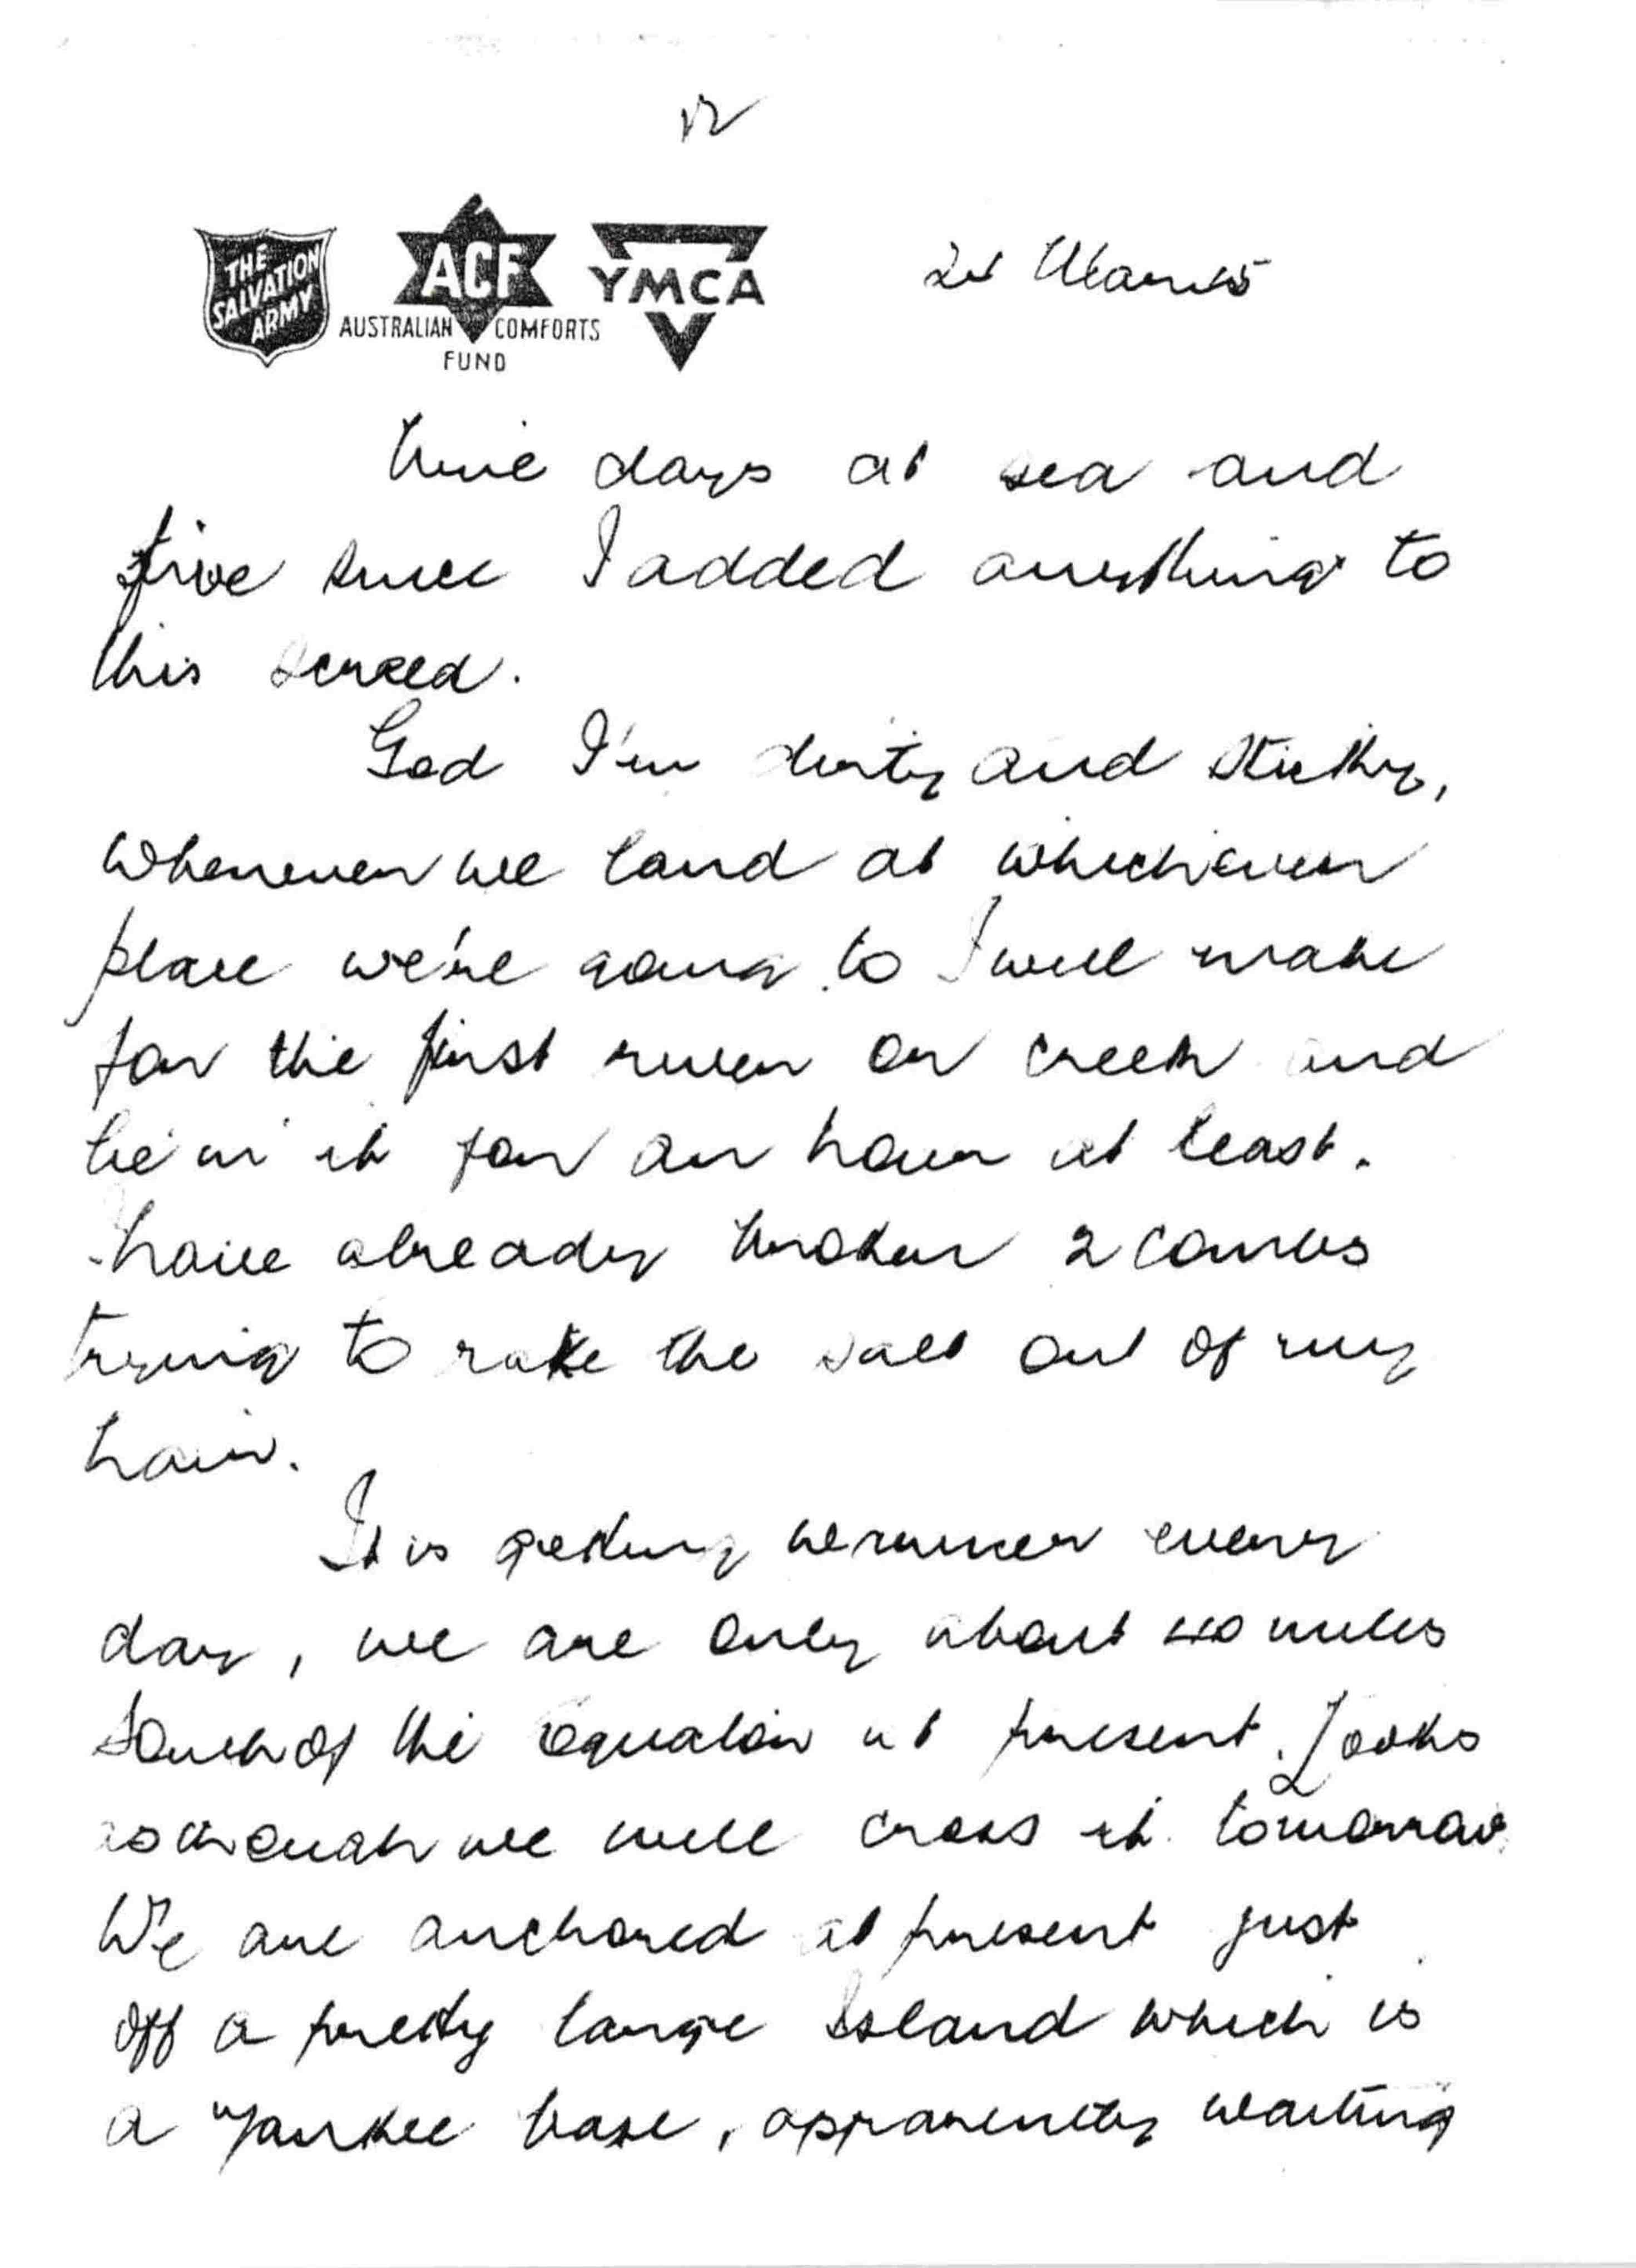 12
THE
SALVATION
ARMY
ACF
AUSTRALIAN COMFORTS
FUND
YMCA
Mar 45
Nine days at sea and
five since I added anything to
this screed.
God I'm dirty and sticky,
whenever we land at whichever
place we're going to I will make
for the first river or creek and
lie in it for an hour at least.
have already broken 2 combs
trying to rake the salt out of my
hair.
It is getting warmer every
day, we are only about miles
South of the equator at present. Looks
as though we will cross it tomorrow.
We are anchored at present just
off a pretty large Island which is
a Yankee base, apparently waiting